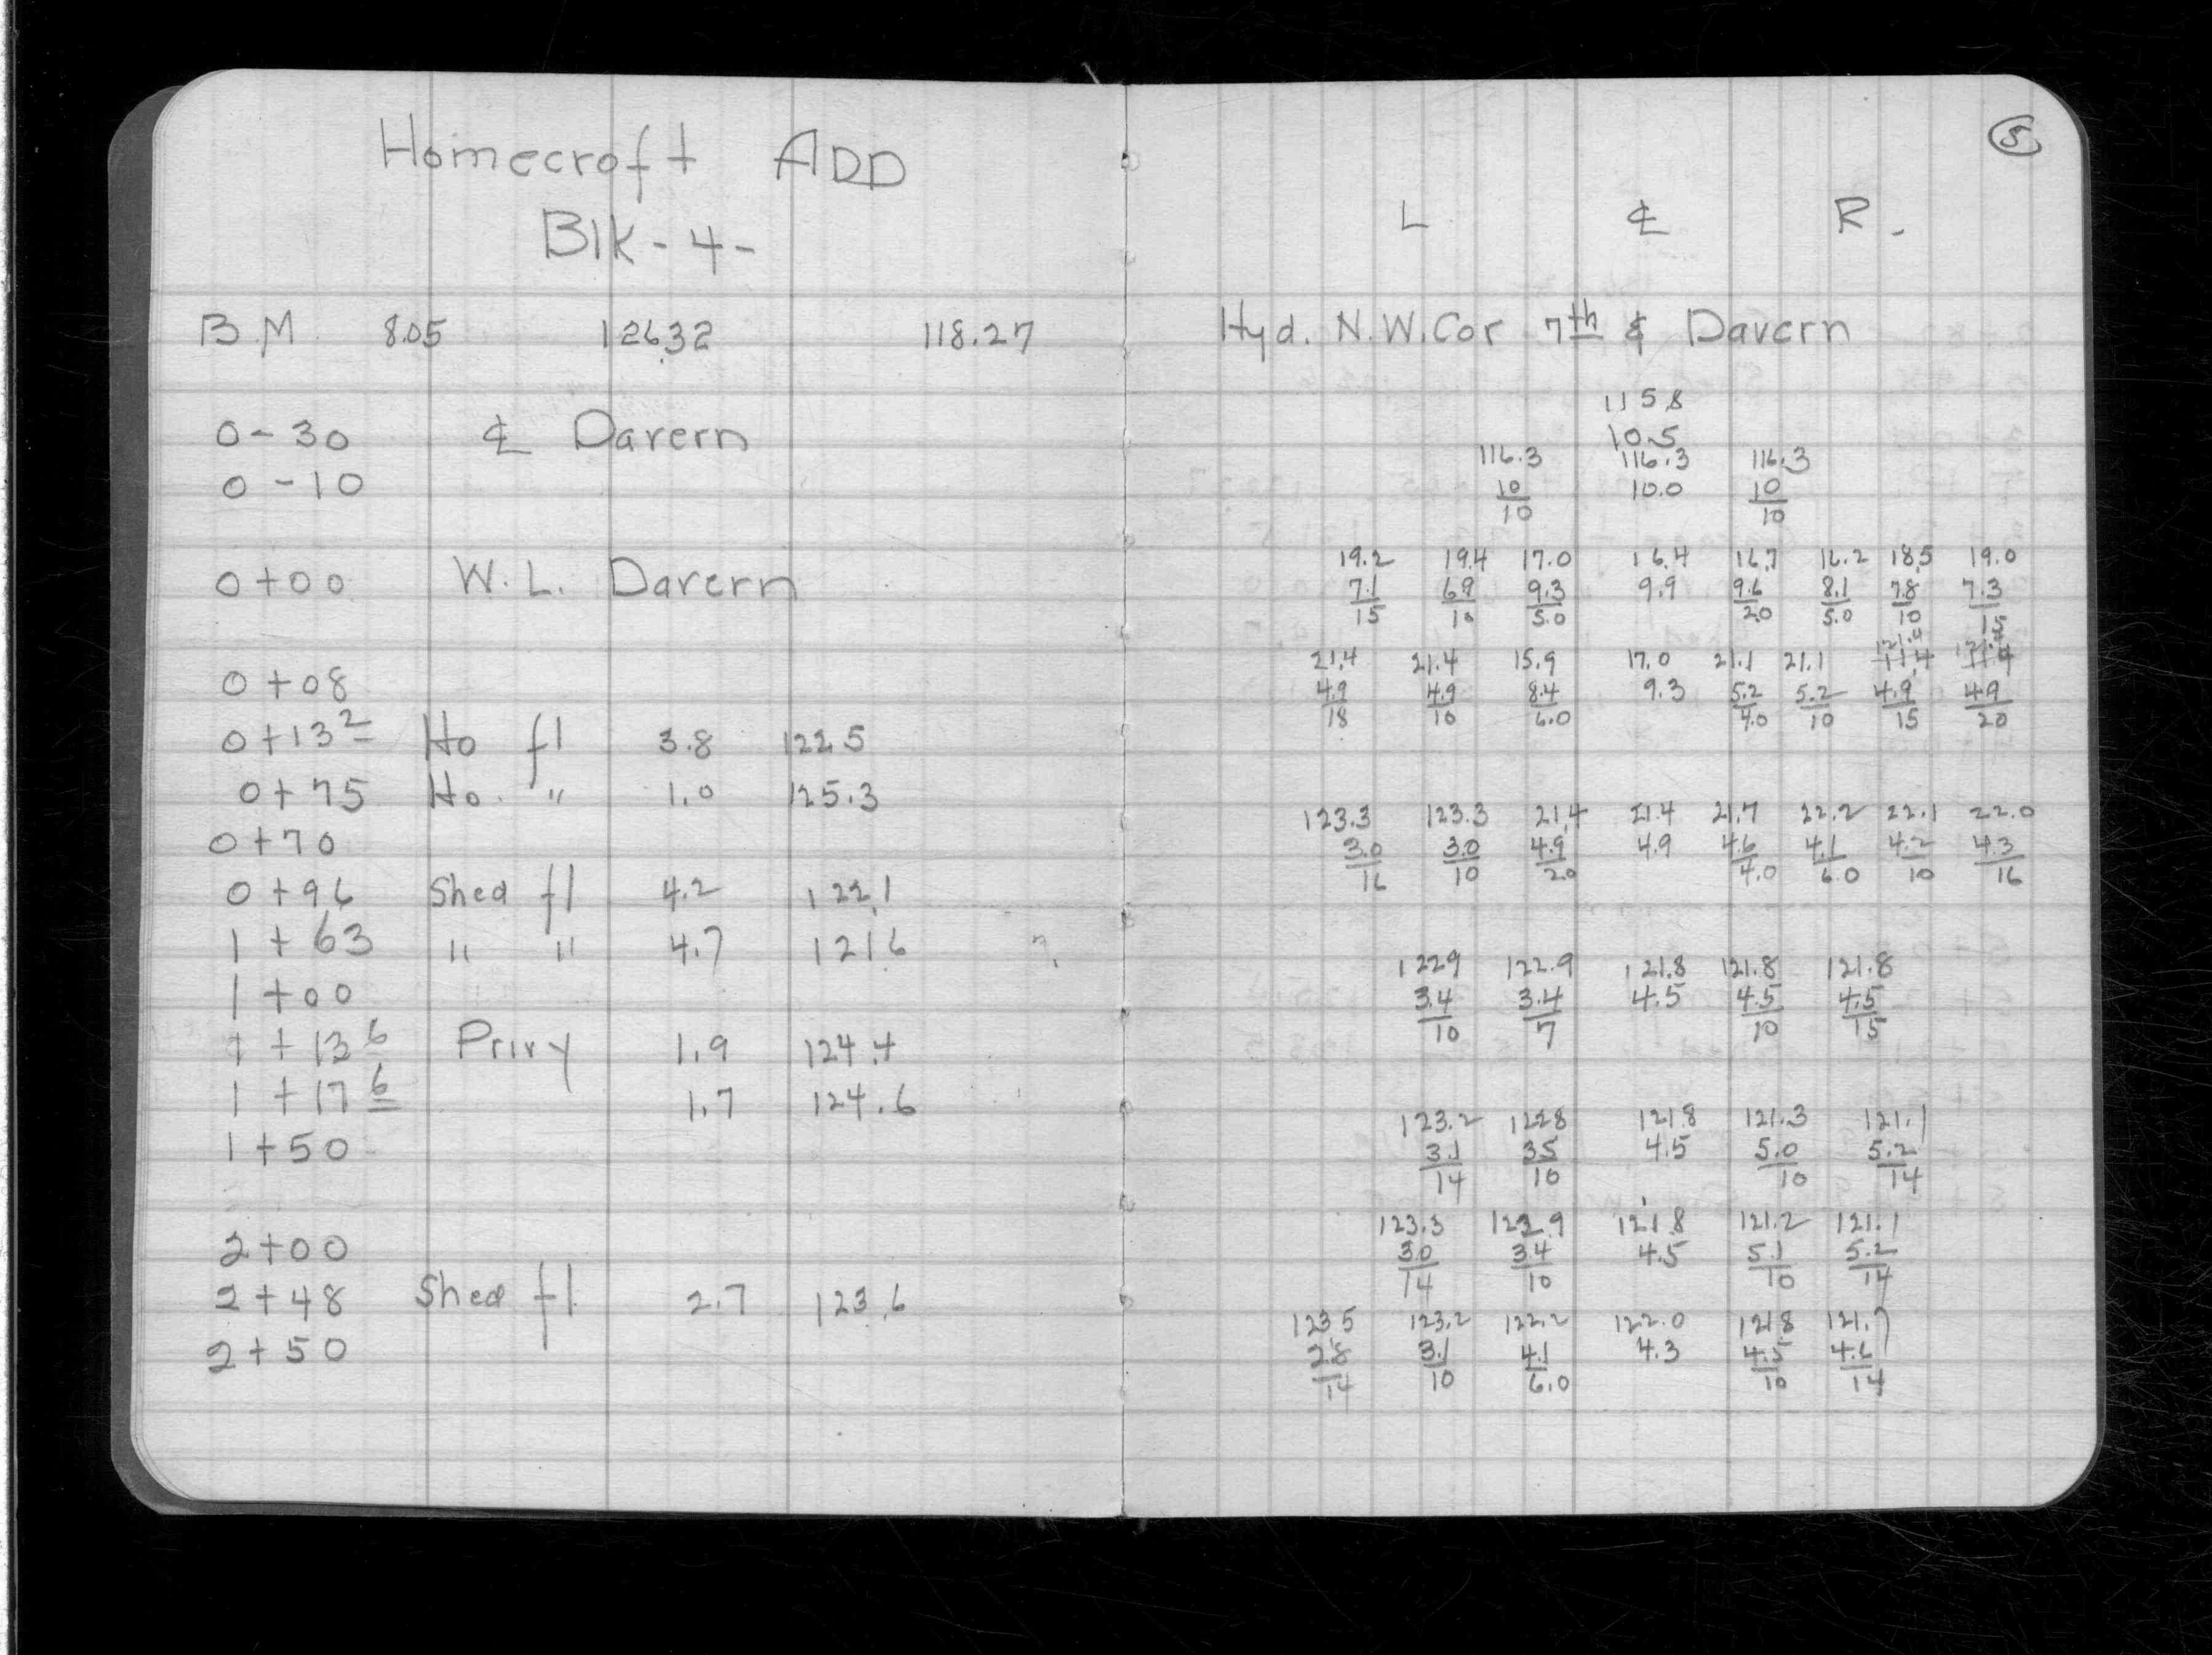 Homecroft ADD
Blk - 4 -
B.M. 8.05 126.32 118.27
0 - 30 ℄ Davern
0 - 10
0 + 00 W. L. Davern
0 + 08
0 + 13 2 Ho fl 3.8 122.5
0 + 75 Ho. " 1.0 125.3
0 + 70
0 + 96 Shed fl 4.2 122.1
1 + 63 " " 4.7 121.6
1 + 00
1 + 13 6 Privy 1.9 124.4
1 + 17 6 1.7 124.6
1 + 50
2 + 00
2 + 48 Shed fl 2.7 123.6
2 + 50
5
L ℄ R.
Hyd. N.W. Cor 7th & Davern
115.8
10.5
116.3 116.3 116.3
10 10.0 10
10 10
19.2 19.4 17.0 16.4 16.7 16.2 18.5 19.0
7.1 6.9 9.3 9.9 9.6 8.1 7.8 7.3
15 10 5.0 2.0 5.0 10 15
121.4 121.4
21.4 21.4 15.9 17.0 21.1 21.1 11.4 11.4
4.9 4.9 8.4 9.3 5.2 5.2 4.9 4.9
18 10 6.0 4.0 10 15 20
123.3 123.3 21.4 21.4 21.7 22.2 22.1 22.0
3.0 3.0 4.9 4.9 4.6 4.1 4.2 4.3
16 10 2.0 4.0 6.0 10 16
122.9 122.9 121.8 121.8 121.8
3.4 3.4 4.5 4.5 4.5
10 7 10 15
123.2 122.8 121.8 121.3 121.1
3.1 3.5 4.5 5.0 5.2
14 10 10 14
123.3 122.9 121.8 121.2 121.1
3.0 3.4 4.5 5.1 5.2
14 10 10 14
123.5 123.2 122.2 122.0 121.8 121.7
2.8 3.1 4.1 4.3 4.5 4.6
14 10 6.0 10 14